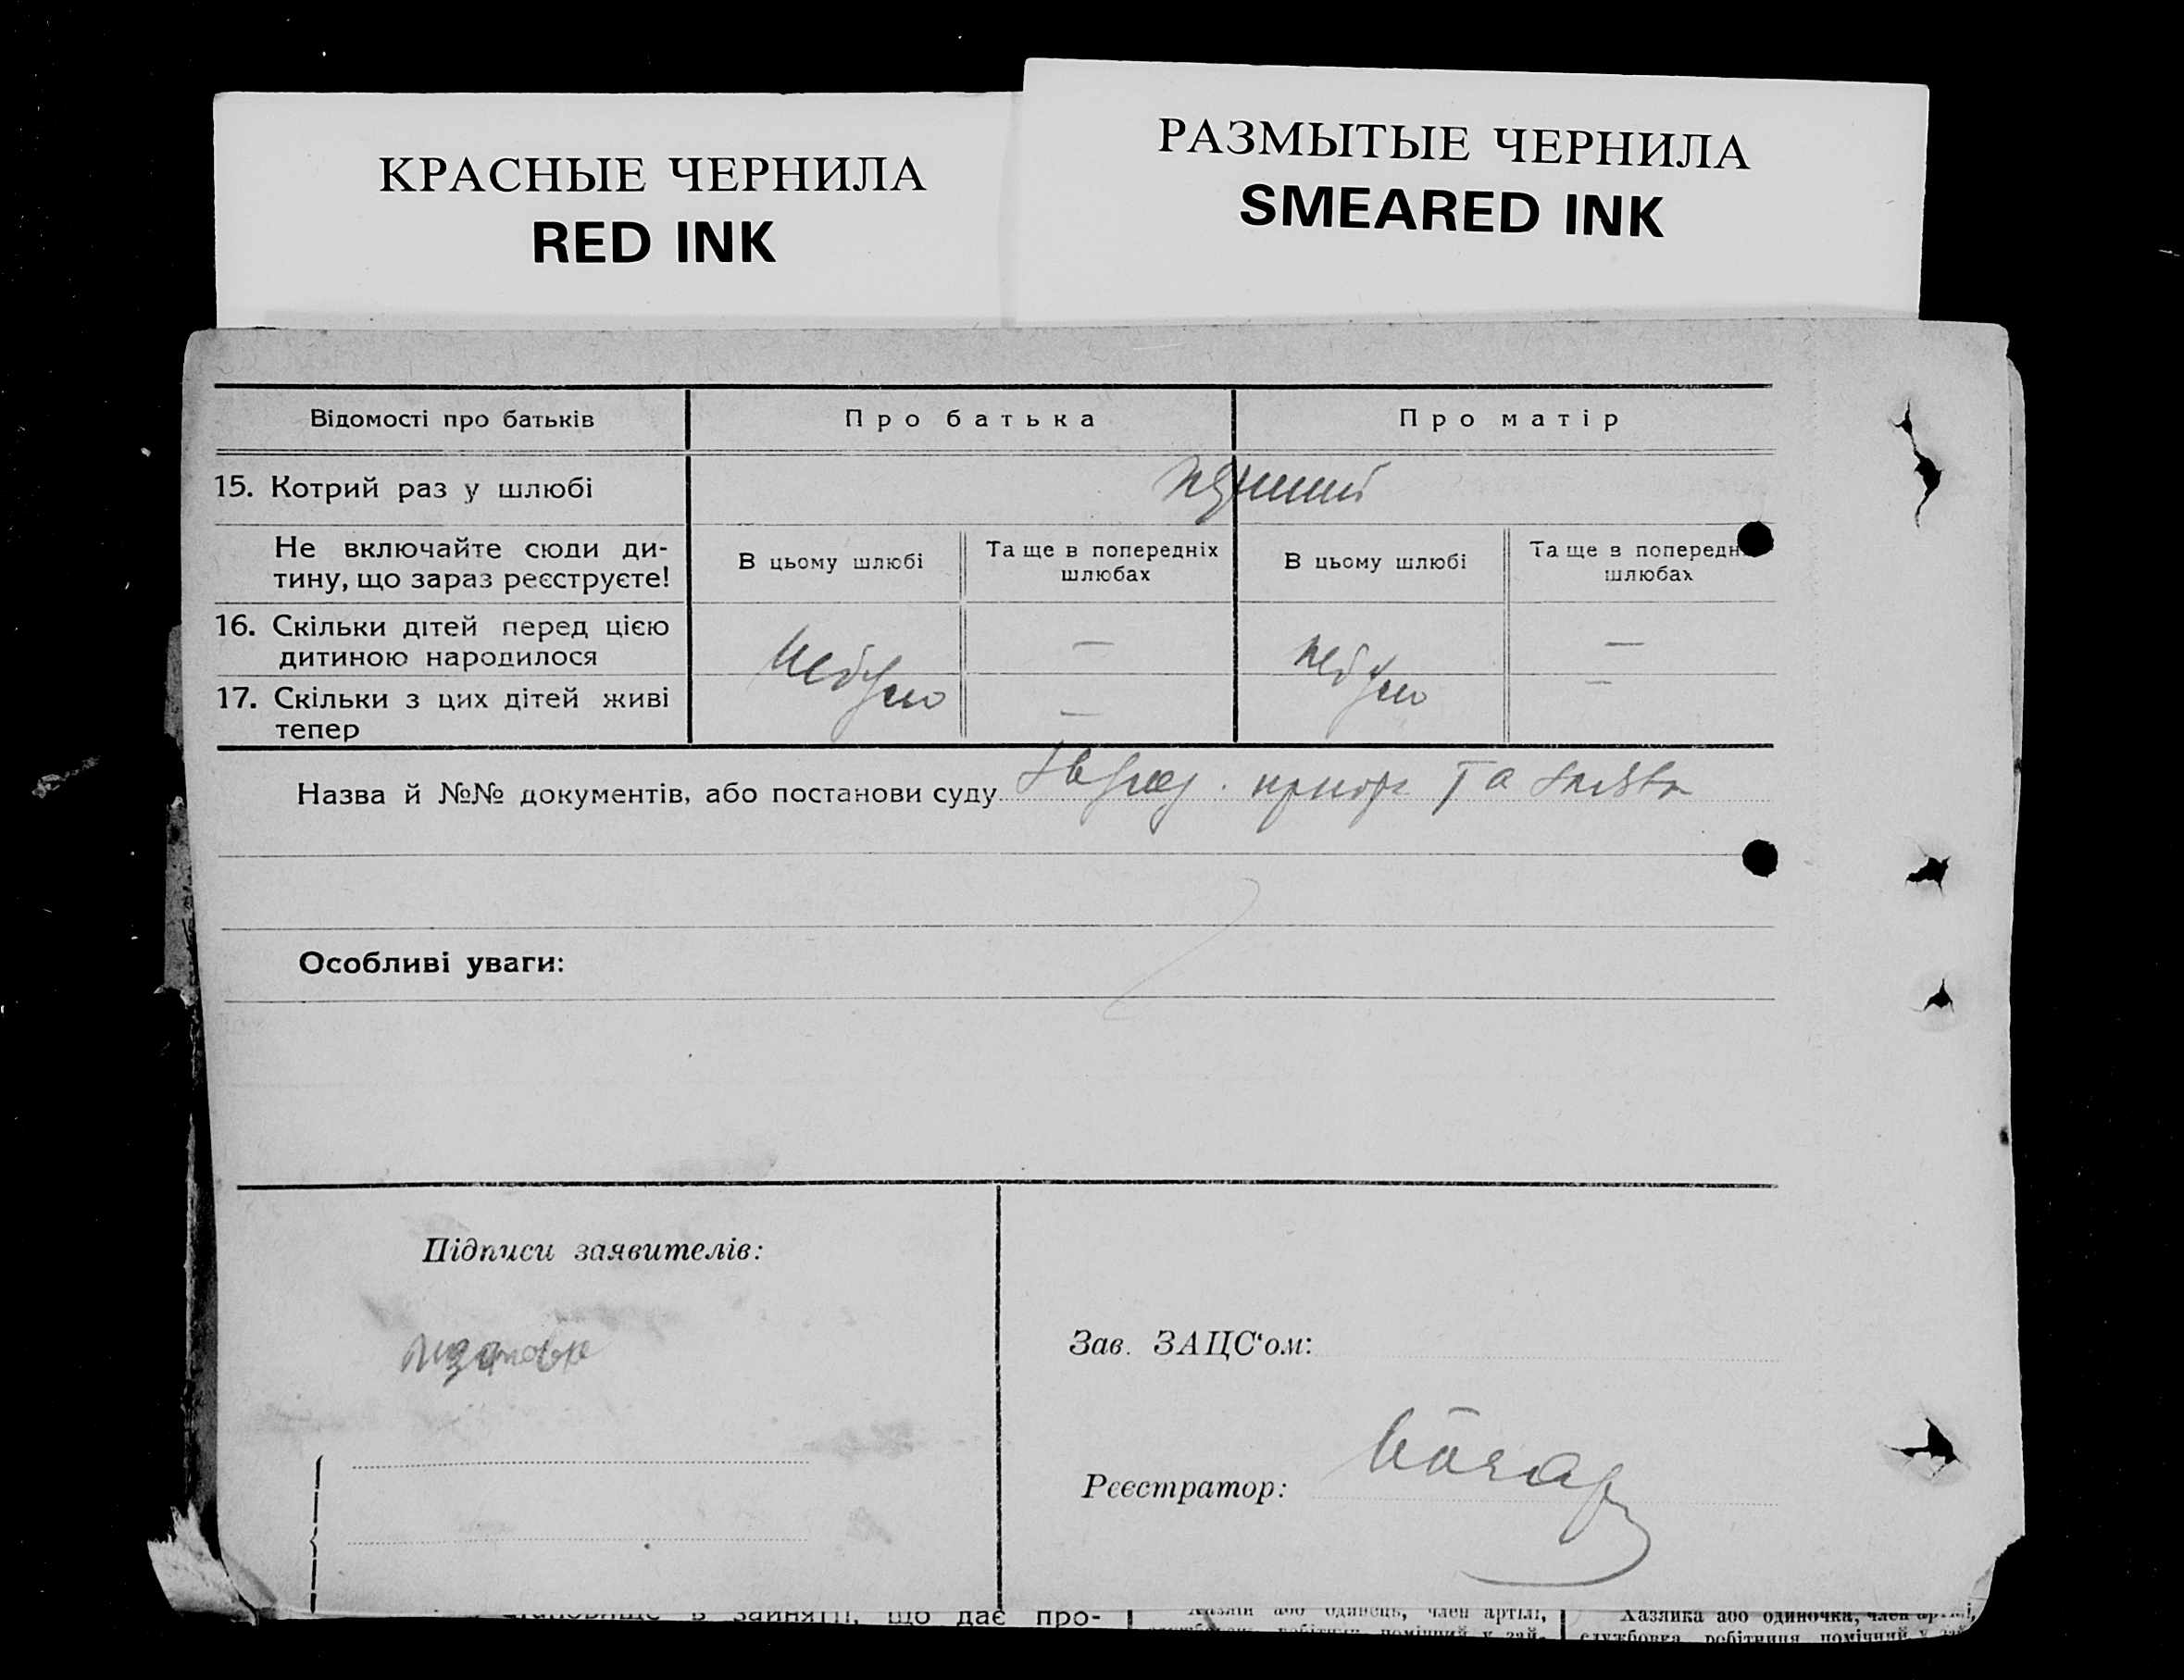 КРАСНЫЕ ЧЕРНИЛА
RED INK
РАЗМЫТЫЕ ЧЕРНИЛА
SMEARED INK
Відомості про батьків
Про батька
Про матір
15. Котрий раз у шлюбі
Не включайте сюди ди-
тину, що зараз реєструєте!
В цьому шлюбі
Та ще в попередніх
шлюбах
В цьому шлюбі
Та ще в попередн
шлюбах
16. Скільки дітей перед цією
дитиною народилося
—
—
17. Скільки з цих дітей живі
тепер
—
—
Назва й №№ документів, або постанови суду
та
Особливі уваги:
Підписи заявителів:
Зав. ЗАЦС'ом:
Реєстратор:
становище в занятті, що дає про-
Хазяїн або одинець, член артілі,
Хазяйка або одиночка, член артілі,
службовка робітниця помічний у зай